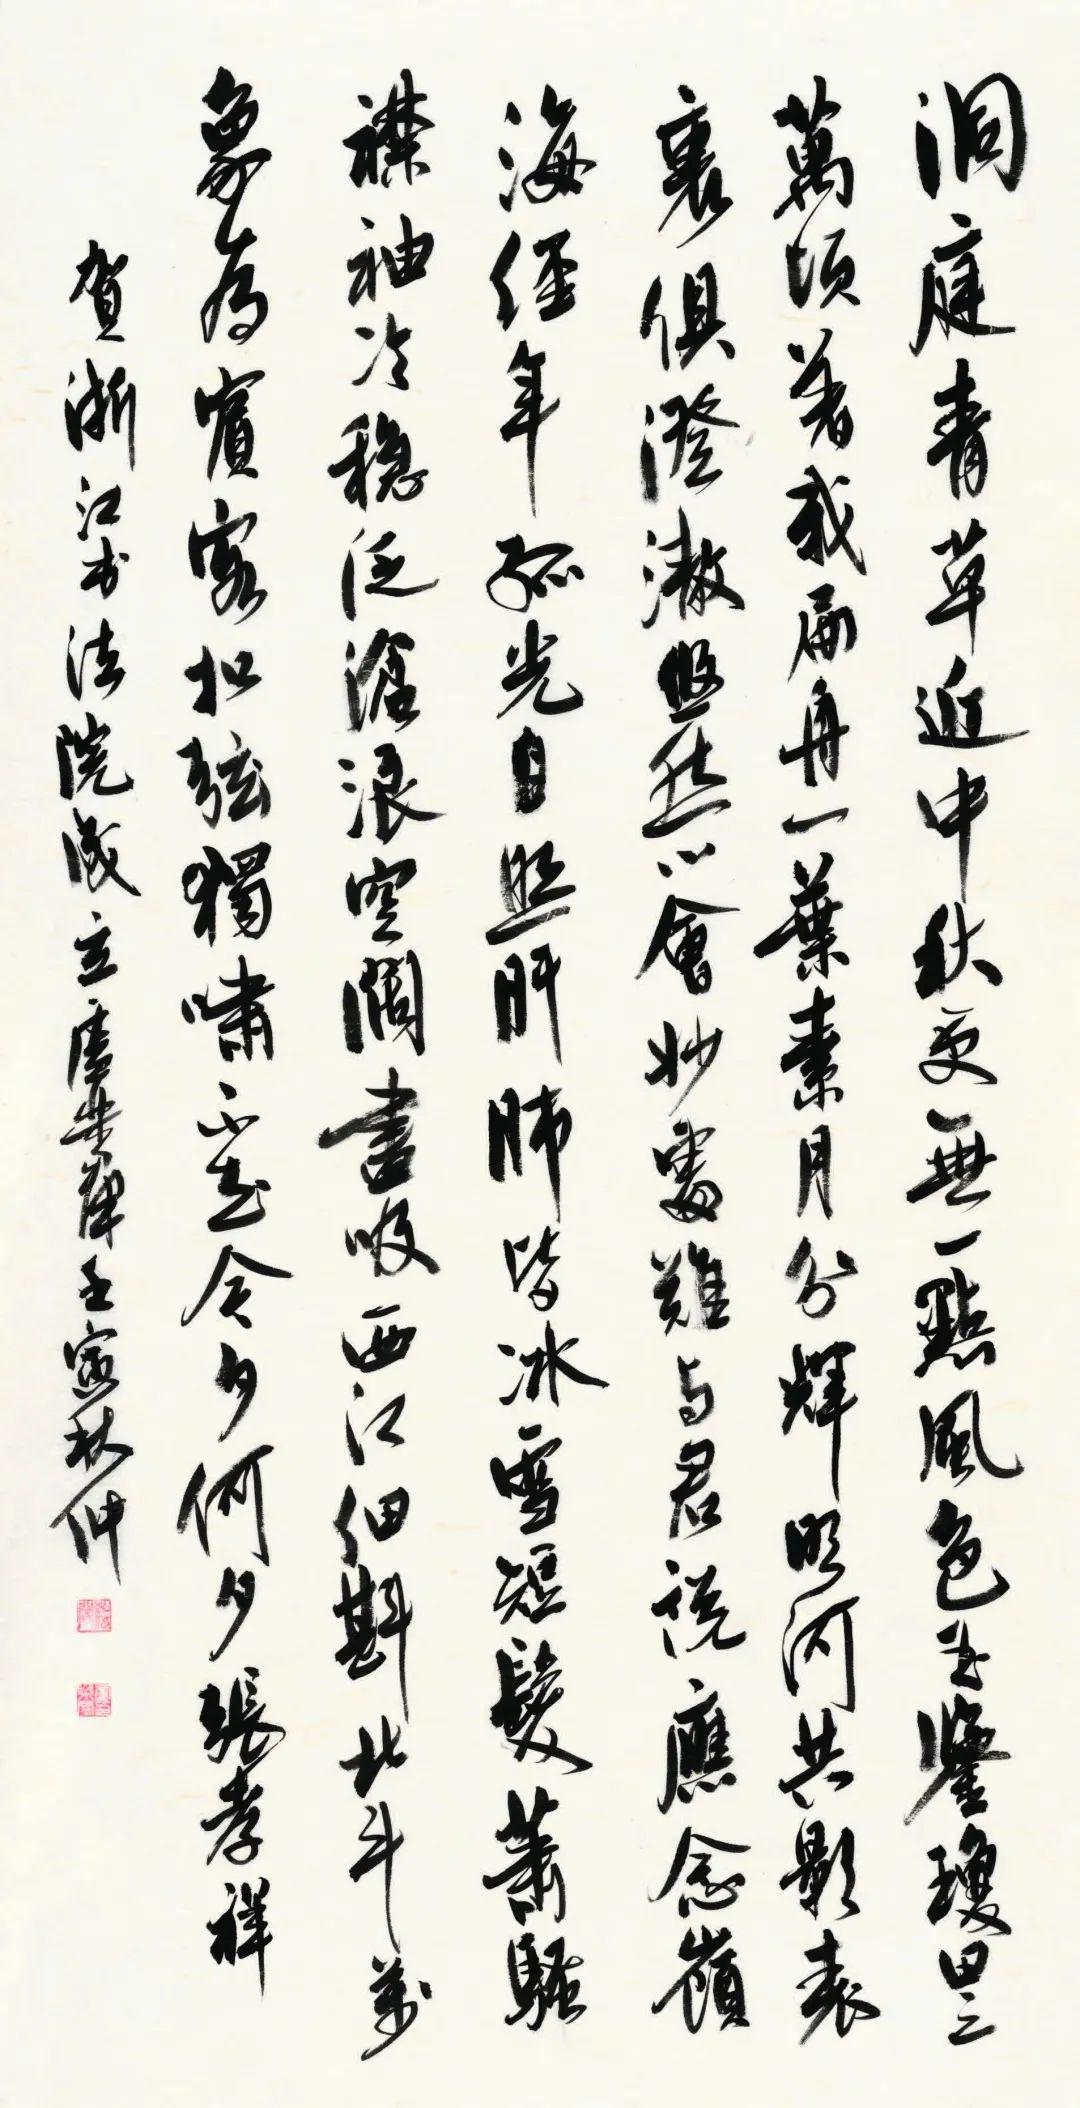 洞庭青草近中秋更無一點風色玉鑒瓊田三
萬頃著我扁舟一葉素月分輝明河共影表
裏俱澄澈悠然心會妙處難与君説應念嶺
海經年孤光自照肝肺皆冰雪短髮蕭騷
襟袖冷穩泛滄浪空闊盡吸西江細斟北斗萬
象為賓客扣弦獨嘯不知今夕何夕張孝祥
賀浙江書法院成立盧樂群壬寅秋仲